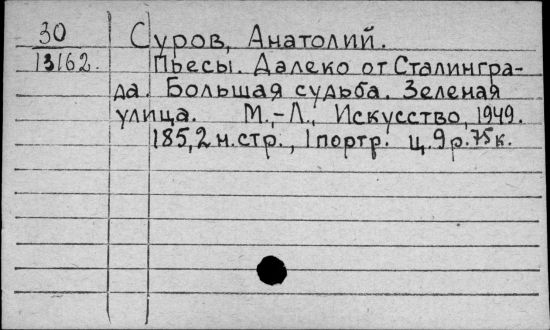 30
13162.
Суров, Анатолий.
Пьесы. Далеко от Сталингра-
да. Большая судьба. Зеленая
улица. М.,-Л., Искусство, 1949.
185,2 н.стр., 1 портр. ц. 9 р. 75 к.